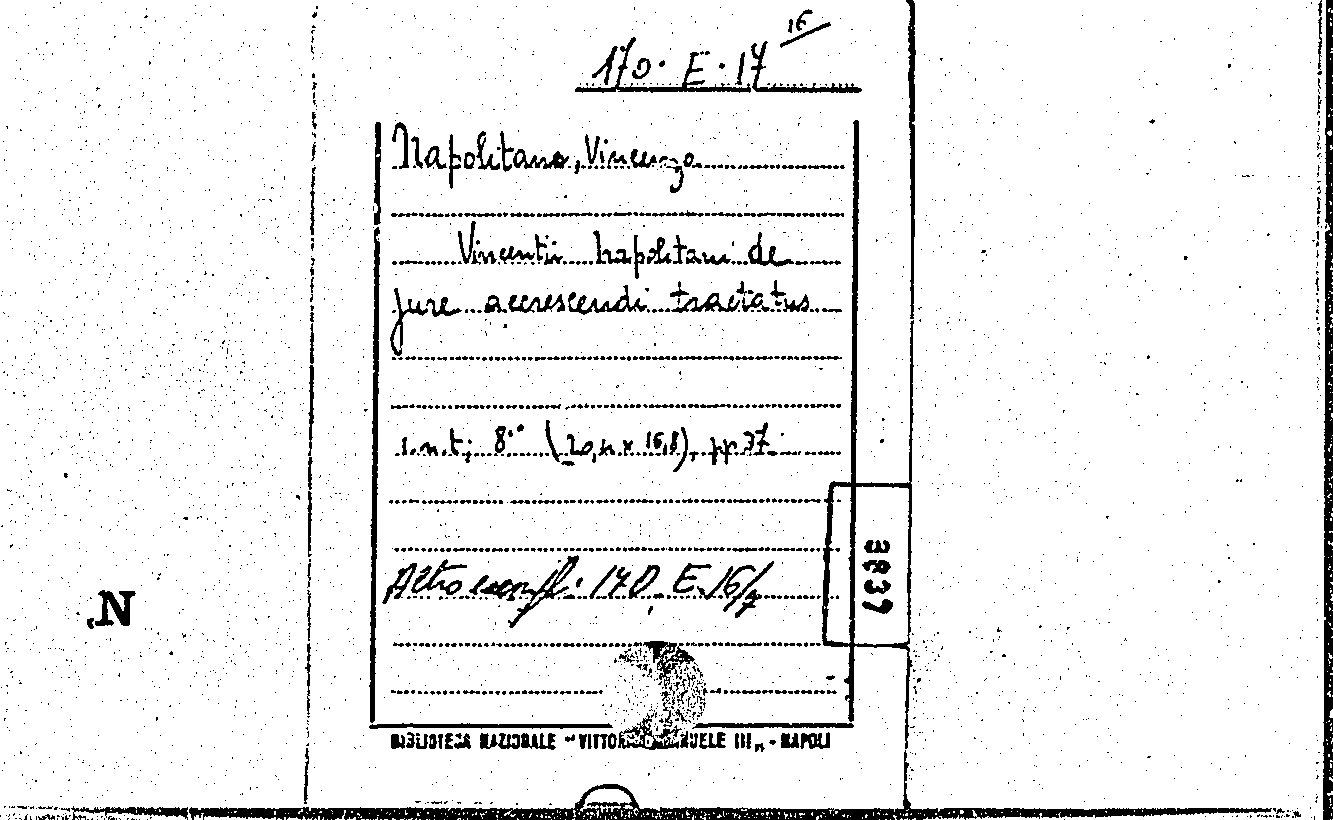 170. E. 17 16
Napolitano, Vincenzo
Vincentii Napolitani de
jure accrescendi tractatus
s.n.t.; 8.° (20,4 x 16,8), pp 37.
3837
Altro esempl: 170. E. 16/7
N
BIBLIOTECA NAZIONALE "VITTORIO EMANUELE III" - NAPOLI